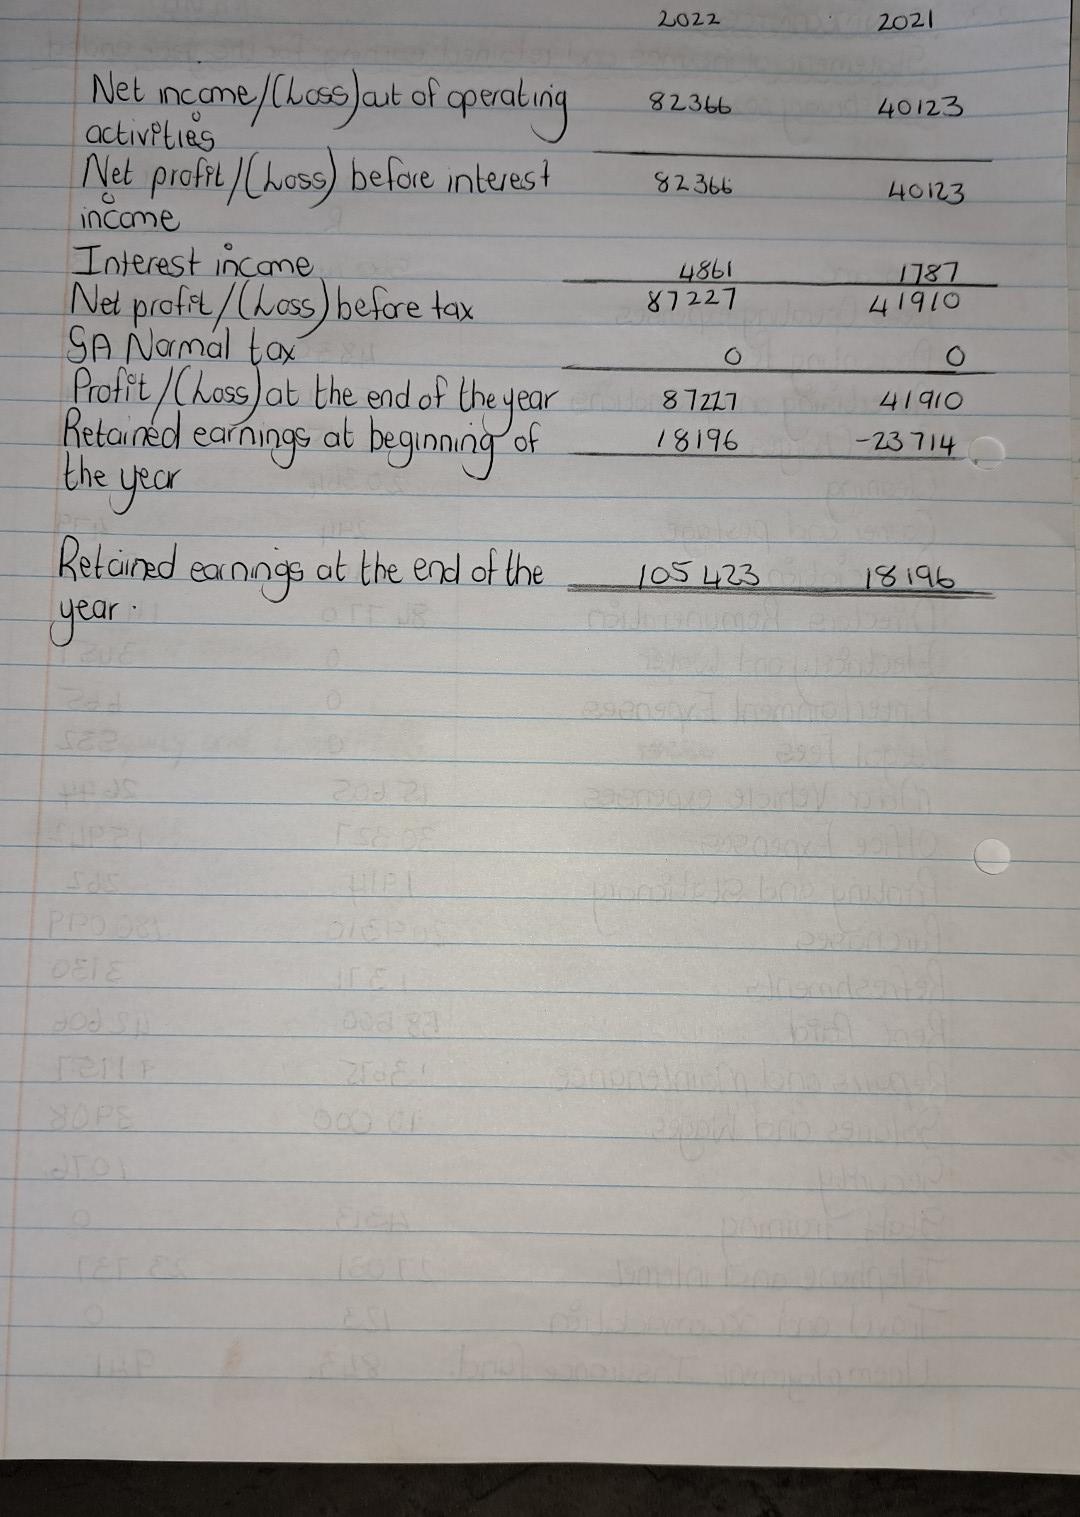 2022 2021
Net income/(Loss) out of operating 82366 40123
activities
Net profit/(Loss) before interest 82366 40123
income
Interest income 4861 1787
Net profit/(Loss) before tax 87227 41910
SA Normal tax 0 0
Profit/(Loss) at the end of the year 87227 41910
Retained earnings at beginning of 18196 -23714
the year
Retained earnings at the end of the 105 423 18196
year.